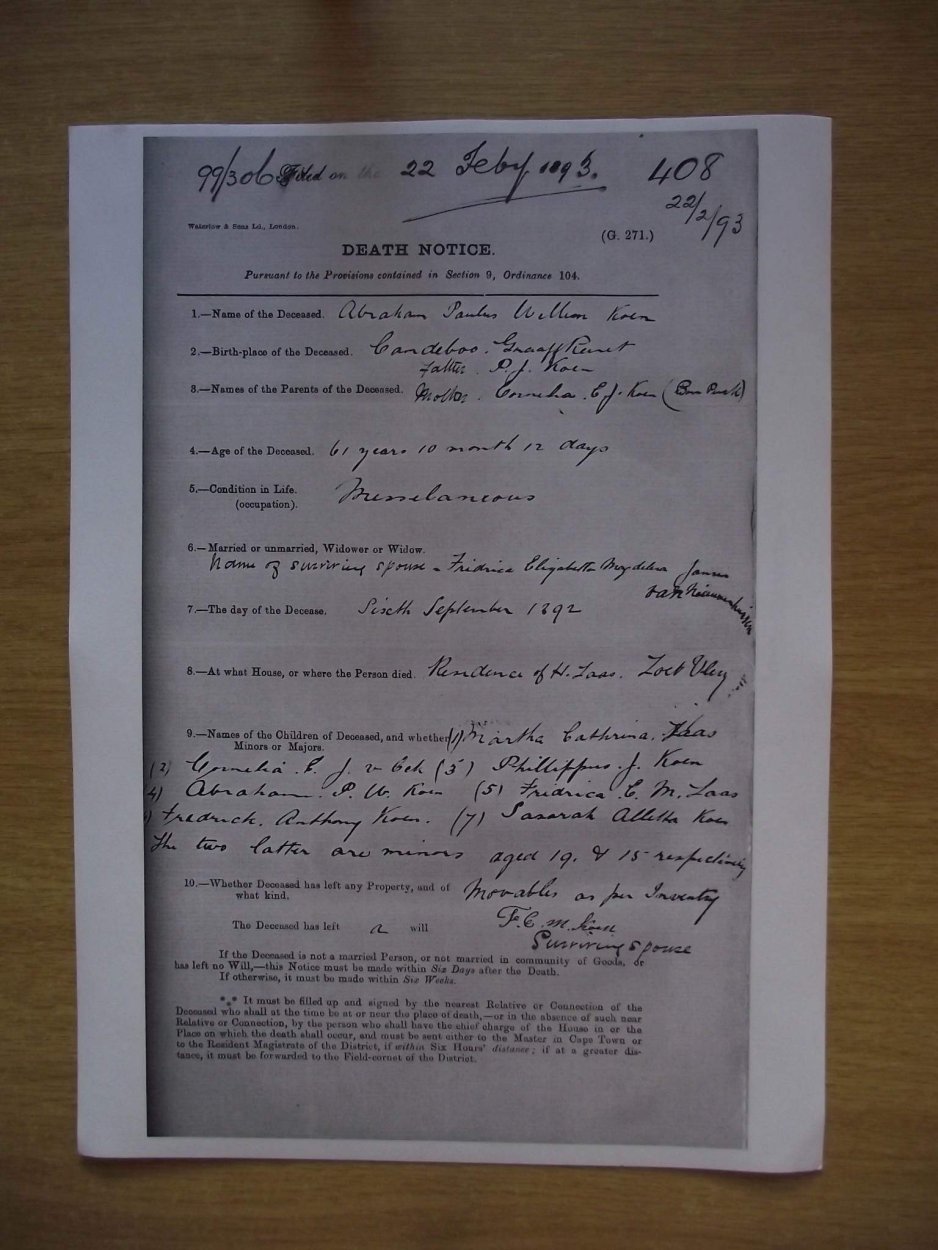 99/306 Filed on the 22 Feby 1893. 408
22/2/93
Waterlow & Sons Ld., London.
(G. 271.)
DEATH NOTICE.
Pursuant to the Provisions contained in Section 9, Ordinance 104.
1.—Name of the Deceased. Abraham Paulus Willem Koen
2.—Birth-place of the Deceased. Camdeboo. Graaff Reinet
father. P. J. Koen
3.—Names of the Parents of the Deceased. Mother. Cornelia. E J. Koen
4.—Age of the Deceased. 61 years 10 month 12 days
5.—Condition in Life. Misselaneous
(occupation).
6.—Married or unmarried, Widower or Widow.
Name of surviving spouse - Fridrica Elizabetta Magdelena Jansen
van
7.—The day of the Decease. Sixth September 1892
8.—At what House, or where the Person died. Residence of H. Laas. Zoet Vley
9.—Names of the Children of Deceased, and whether (1) Martha Cathrina. Haas
Minors or Majors.
(2) Cornelia. E. J. v Eck (3) Phillippus. J. Koen
4) Abraham. P. W. Koen (5) Fridrica E. M. Laas
) Fredrick. Anthony Koen. (7) Sasarah Alletha Koen
The two latter are minors aged 19. & 15 respectively
10.—Whether Deceased has left any Property, and of Movables as per Inventry
what kind.
The Deceased has left a will F. E. M. Koen
Surviving spouse
If the Deceased is not a married Person, or not married in community of Goods, or
has left no Will,—this Notice must be made within Six Days after the Death.
If otherwise, it must be made within Six Weeks.
*⁎* It must be filled up and signed by the nearest Relative or Connection of the
Deceased who shall at the time be at or near the place of death,—or in the absence of such near
Relative or Connection, by the person who shall have the chief charge of the House in or the
Place on which the death shall occur, and must be sent either to the Master in Cape Town or
to the Resident Magistrate of the District, if within Six Hours' distance; if at a greater dis-
tance, it must be forwarded to the Field-cornet of the District.